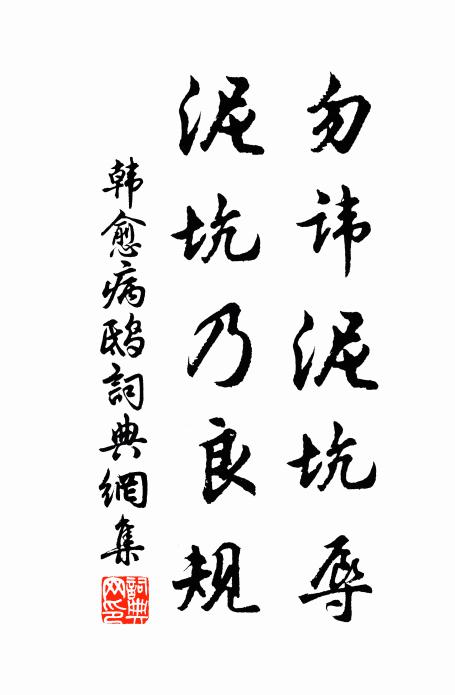 勿讳泥坑辱
泥坑乃良规
韩愈病鸱詞典網集
詞典网印